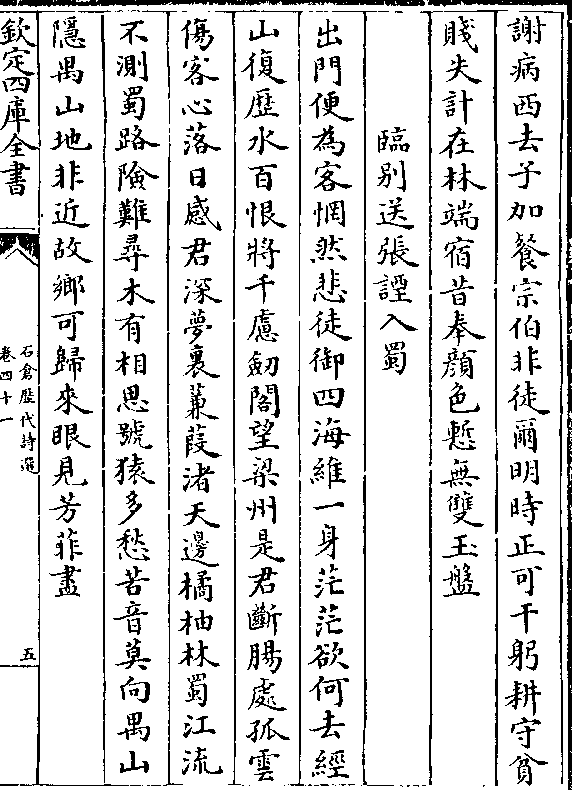 謝病西去子加餐宗伯非徒爾明時正可干躬耕守貧
賤失計在林端宿昔奉顔色慙無雙玉盤
臨别送張諲入蜀
出門便為客惘然悲徒御四海維一身茫茫欲何去經
山復歴水百恨將千慮劒閣望梁州是君斷腸處孤雲
傷客心落日感君深夢裏蒹葭渚天邊橘柚林蜀江流
不測蜀路險難尋木有相思號猿多愁苦音莫向禺山
隱禺山地非近故鄉可歸來眼見芳菲盡
欽定四庫全書
石倉歴代詩選
卷四十一
五